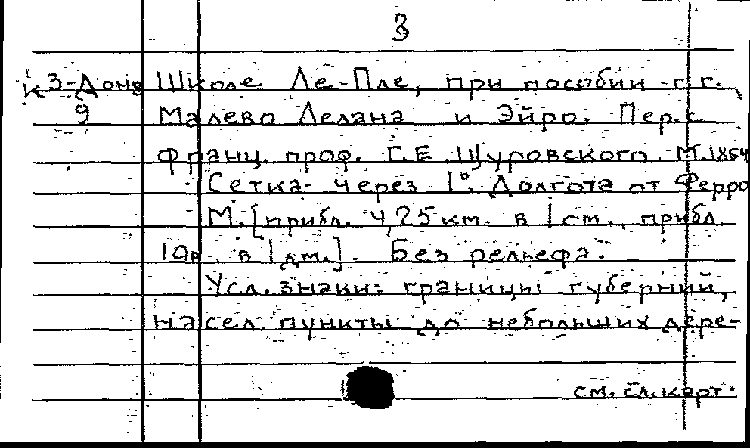 3
К З-Дон. Школе Ле-Пле, при пособии г.г.
9 Малево Делана и Эйро. Пер. с
франц. проф. Г.Е. Щуровского. М. 1854
Сетка через 1°. Долгота от Ферро
М. [прибл. 4,25 км. в 1 см., прибл.
10в. в 1 дм.]. Без рельефа.
Усл. знаки: границы губерний,
насел. пункты до небольших дере-
см. сл. карт.